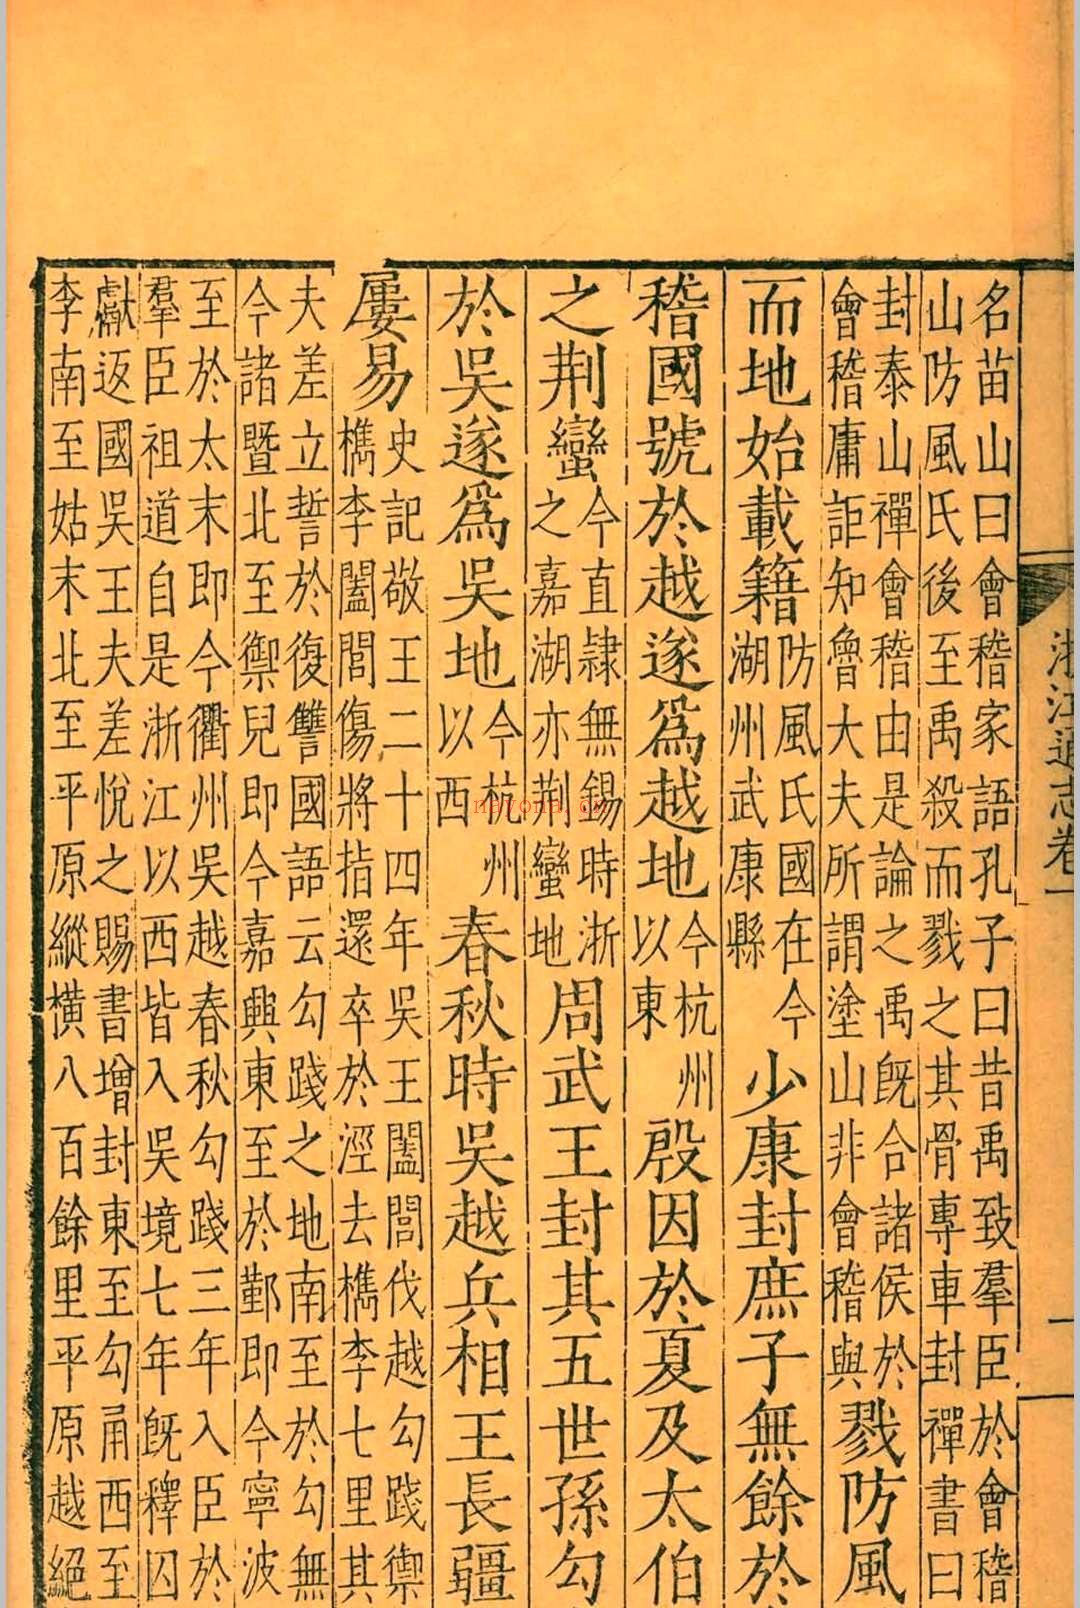 浙江通志卷一
一
名苗山曰會稽家語孔子曰昔禹致羣臣於會稽
山防風氏後至禹殺而戮之其骨專車封禪書曰
封泰山禪會稽由是論之禹既合諸侯於
會稽庸詎知魯大夫所謂塗山非會稽與
戮防風
而地始載籍
防風氏國在今
湖州武康縣
少康封庶子無餘於
稽國號於越遂爲越地
今杭州
以東
殷因於夏及太伯
之荆蠻
今直隸無錫時浙
之嘉湖亦荆蠻地
周武王封其五世孫勾
於吳遂爲吳地
今杭州
以西
春秋時吳越兵相王長疆
屢易
史記敬王二十四年吳王闔閭伐越勾踐禦
檇李闔閭傷將指還卒於涇去檇李七里其
夫差立誓於復讐國語云勾踐之地南至於勾無
今諸暨北至禦兒即今嘉興東至於鄞即今寧波
至於太末即今衢州吳越春秋勾踐三年入臣於
羣臣祖道自是浙江以西皆入吳境七年既釋囚
獻返國吳王夫差悅之賜書增封東至勾甬西至
李南至姑末北至平原縱橫八百餘里平原越絕